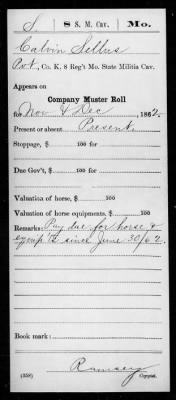 S | 8 S. M. Cav. | Mo.
Calvin Sellus
Pvt, Co. K, 8 Reg't Mo. State Militia Cav.
Appears on
Company Muster Roll
for Nov & Dec, 1862.
Present or absent Present
Stoppage, $ 100 for
Due Gov't, $ 100 for
Valuation of horse, $ 100
Valuation of horse equipments, $ 100
Remarks: Pay due for horse &
equip'ts since June 30/62.
Book mark:
Ramsey
(358) Copyist.